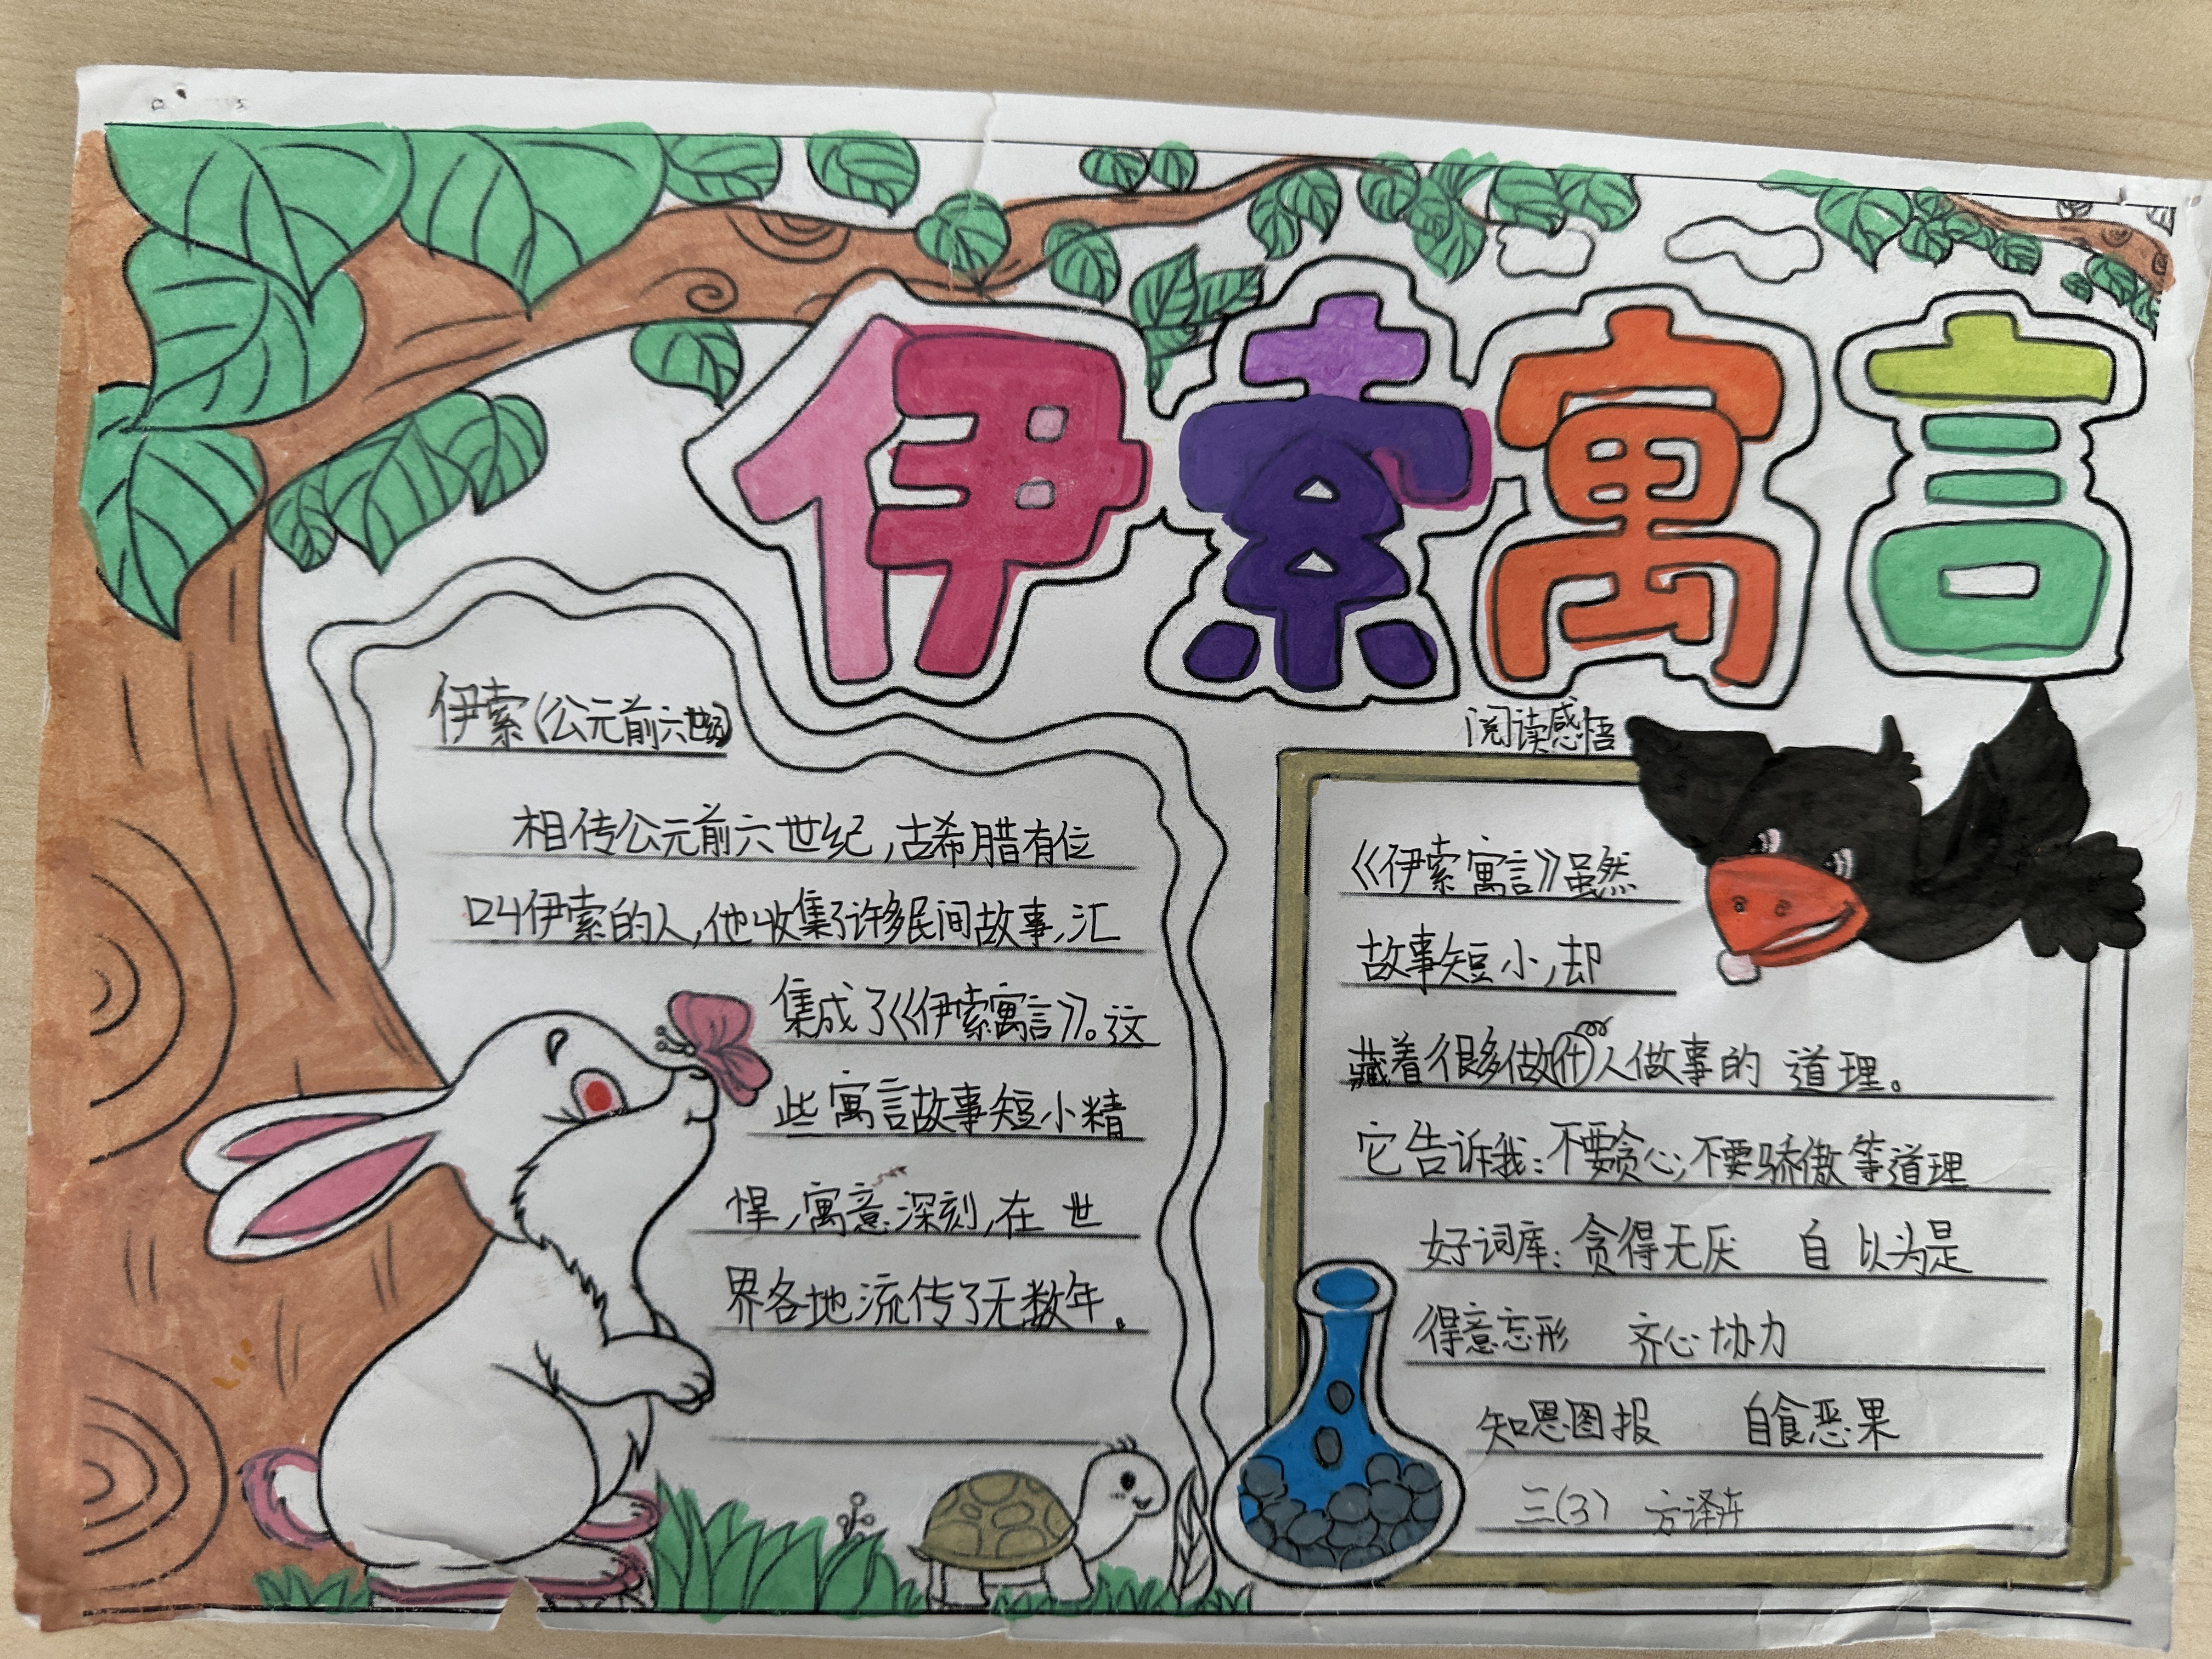 伊索寓言
伊索(公元前六世纪)
相传公元前六世纪,古希腊有位
叫伊索的人,他收集了许多民间故事,汇
集成了《伊索寓言》。这
些寓言故事短小精
悍,寓意深刻,在世
界各地流传了无数年。
阅读感悟
《伊索寓言》虽然
故事短小,却
藏着很多做什人做事的 道理。
它告诉我:不要贪心,不要骄傲等道理
好词库:贪得无厌 自以为是
得意忘形 齐心协力
知恩图报 自食恶果
三(3) 方译卉